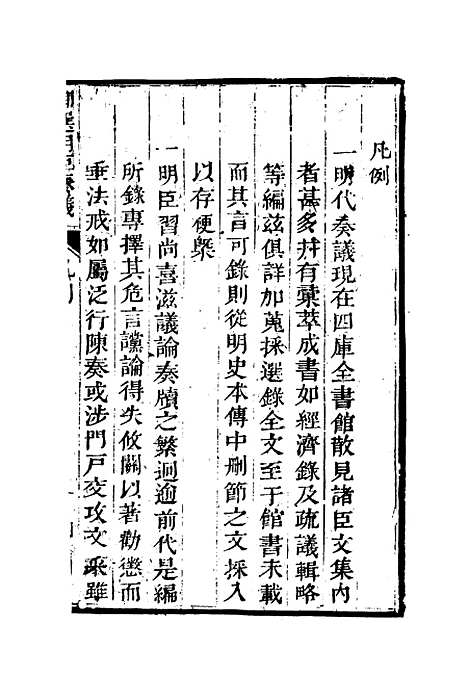 凡例
一明代奏議現在四庫全書館散見諸臣文集內
者甚多幷有彙萃成書如經濟錄及疏議輯略
等編茲俱詳加蒐採選錄全文至于館書未載
而其言可錄則從明史本傳中刪節之文採入
以存梗槩
一明臣習尚喜滋議論奏牘之繁迥逾前代是編
所錄專擇其危言讜論得失攸關以著勸懲而
垂法戒如屬泛行陳奏或涉門戶交攻文采雖